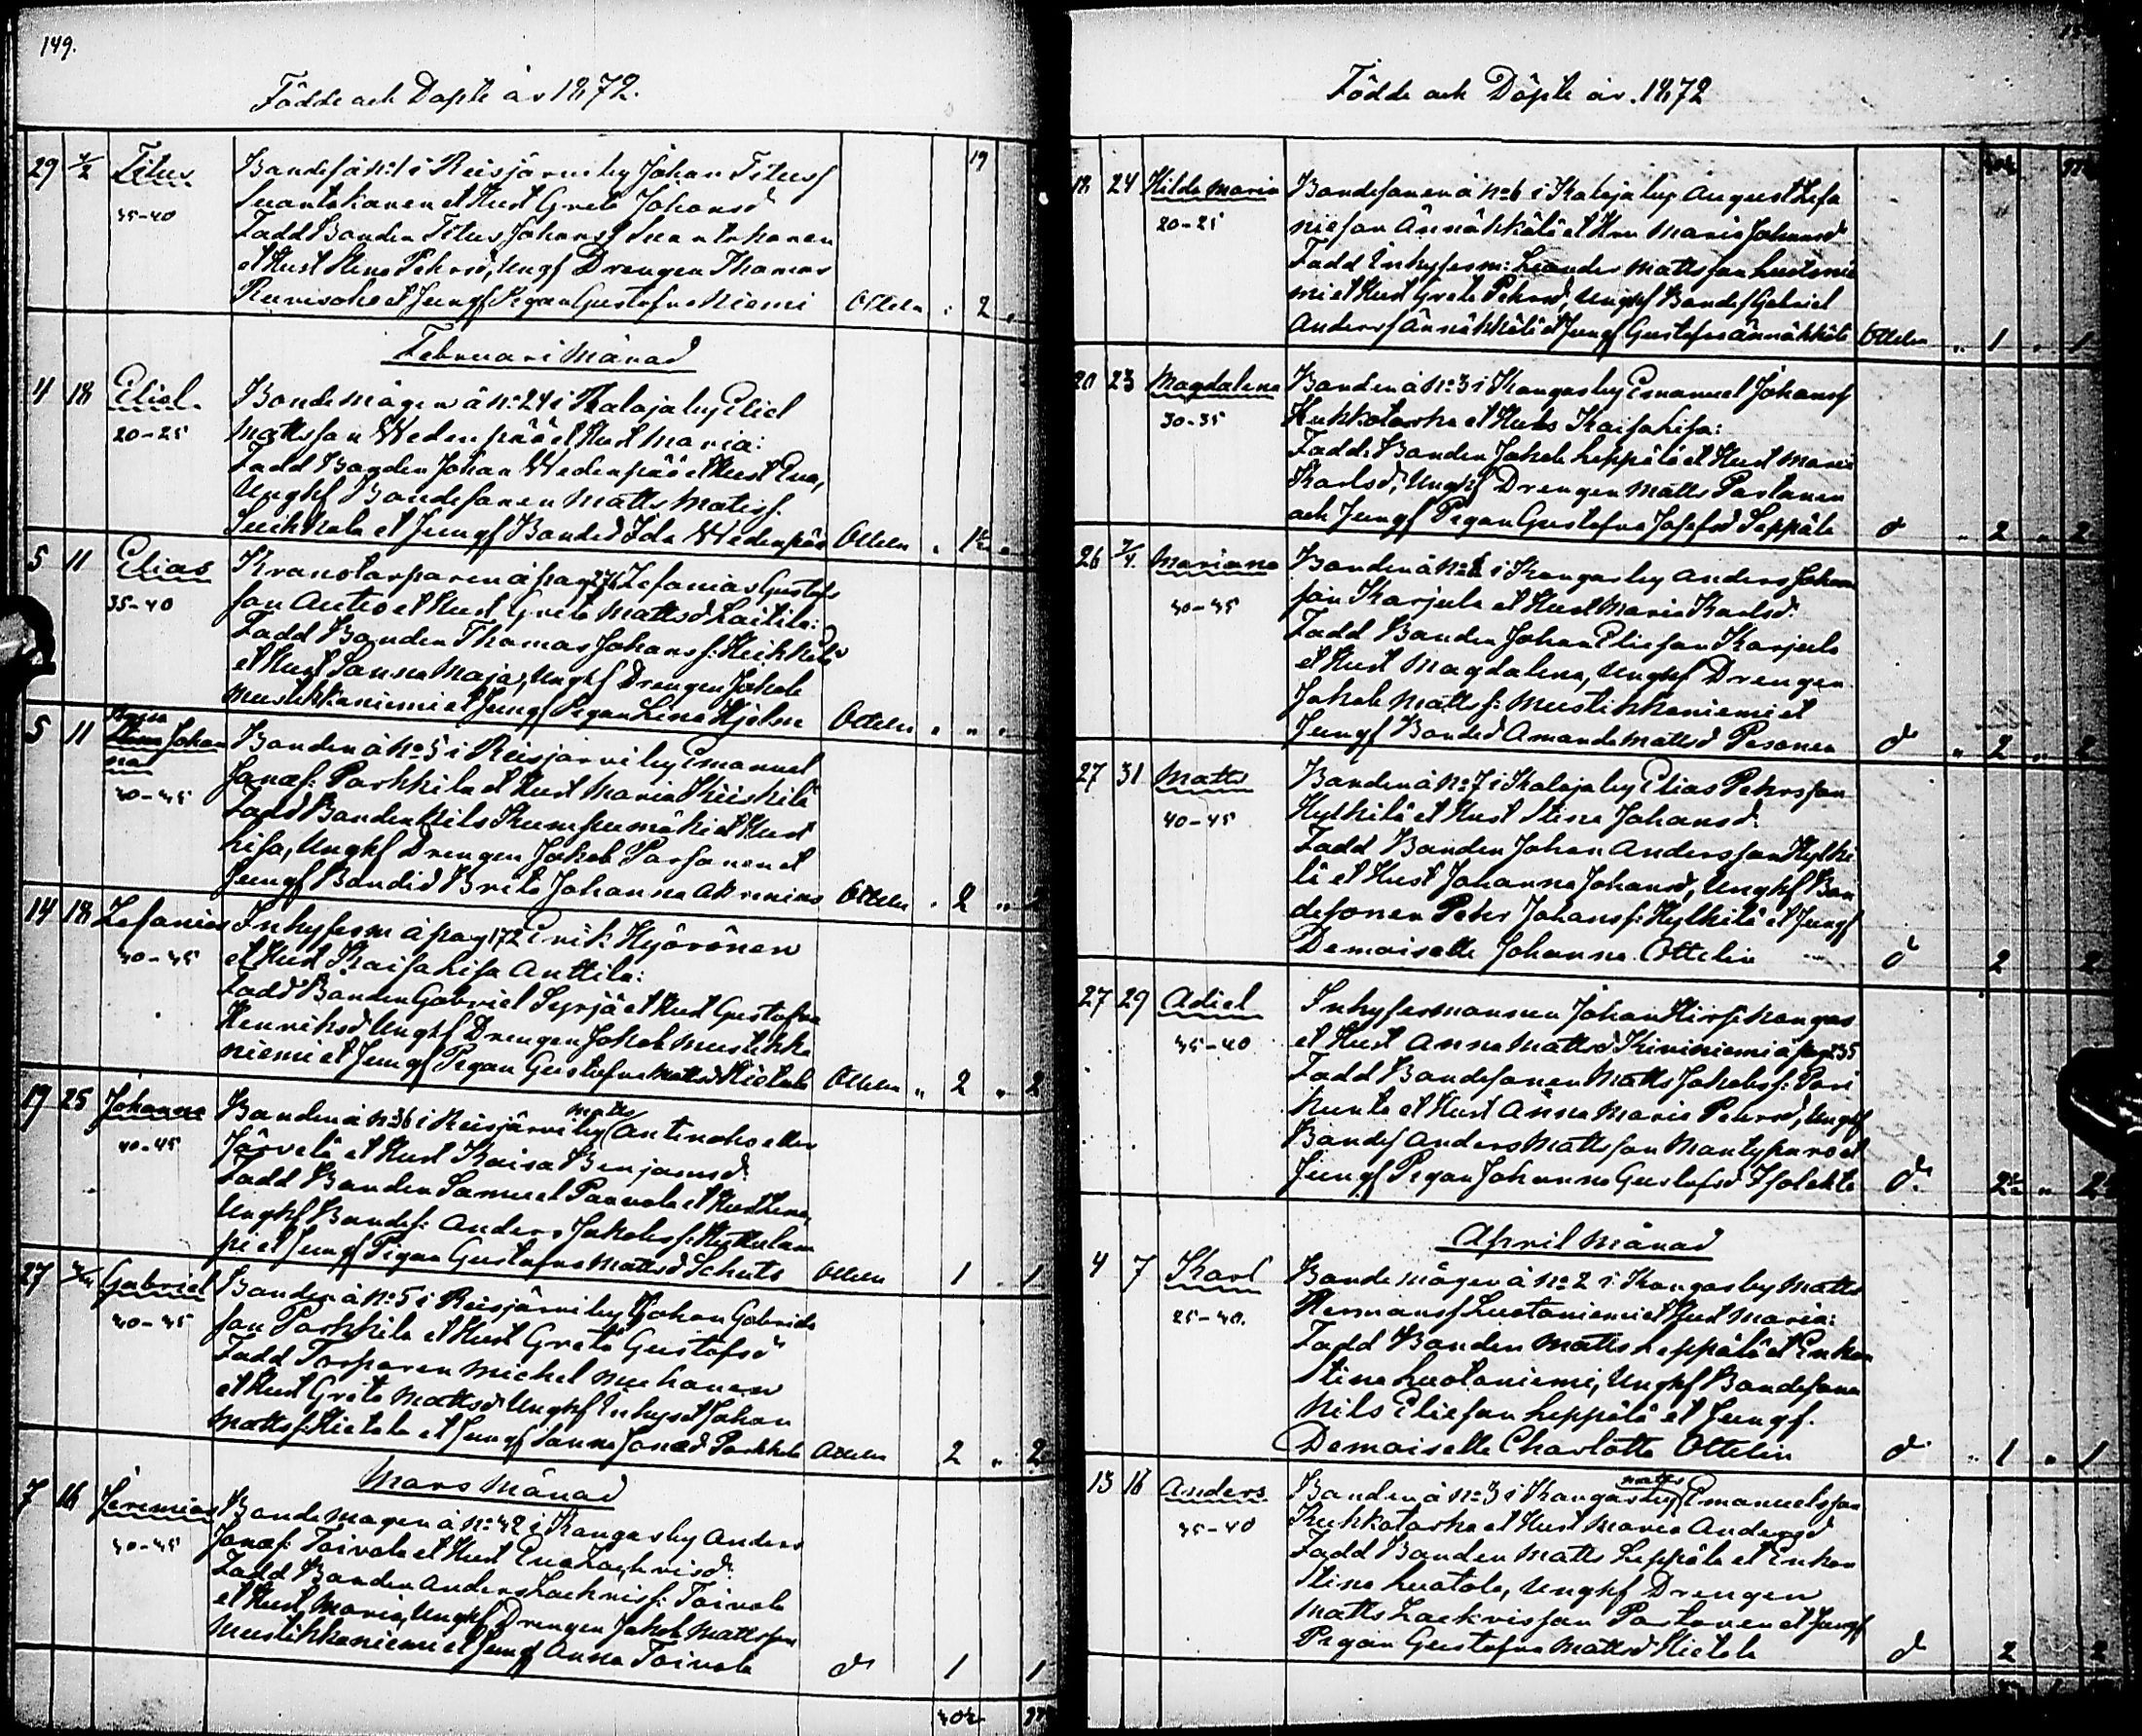 149.
Födde och Döpte år 1872.
29 4/2 Titus Bondes. å N:1 i Reisjärvi by Johan Titus s.
35-40 Suontakanen et Hust Greta Johansd
Fadd Bonden Titus Johans s. Suontakanen
et Hust Stina Pehrsd, Ungf Drengen Thomas
et Jungf Pigan Gustafva Niemi Ottelin 2
Februari Månad
4 18 Eliel Bondemågen å N:24 i Kalaja by Eliel
20-25 Mattsson Wedenpää et Hust Maria:
Fadd Bonden Johan Wedenpää et Hust Eva,
Unghf Bondesonen Matts Matts s.
et Jungf Bonded Ida Wedenpää Ottelin
5 11 Elias Kronotorparen å pag 276 Zefanias Gustafs
35-40 son Autio et Hust Greta Mattsd Laitila:
Fadd Bonden Thomas Johans s. Heikkilä
et Hust Sanna Maja, Unghf Drengen Jakob
Mustikkaniemi et Jungf Pigan Lena Hjelm Ottelin
5 11 Stina Johan Bonden å No 5 i Reisjärvi by Emanuel
na
40-45 Jonæs. Parkkila et Hust Maria Kiiskilä
Fadd Bonden Nils Kumpumäki et Hust
Lisa, Unghf Drengen Jakob et
Jungf Bonded Brita Johanna Ottelin 2
14 18 Zefanias Inhysesm å pag 172 Erik Hyvönen
40-45 et Hust Kaisa Lisa Anttila:
Fadd Bonden Gabriel Syrjä et Hust Gustafva
Henriksd Unghf Drengen Jakob Mustikka
niemi et Jungf Pigan Gustafva Mattsd Hietala Ottelin 2 2
19 25 Johanna Bonden å N:36 i Reisjärvi by Matts Antinoho eller
40-45 Järvelä et Hust Kaisa Benjamsd:
Fadd Bonden Samuel Paavola et Hust Lena,
Unghf Bondes: Anders Jakobs s.
pi et Jungf Pigan Gustafva Mattsd Ottelin 1 1
27 Gabriel Bonden å No 5 i Reisjärvi by Johan Gabriels
40-45 son Parkkila et Hust Greta Gustafsd
Fadd Torparen Michel Muhonen
et Hust Greta Mattsd Unghf Inhyses Johan
Matts s. Hietala et Jungf Sanna Jonæd Parkkila Ottelin 2 2
Mars Månad
7 16 Jeremias Bondemågen å N:42 i Kangas by Anders
40-45 Jonæs: Toivola et Hust Eva Zachrisd:
Fadd Bonden Anders Zachris s: Toivola
et Hust Maria, Unghf Drengen Jakob Mattsson
Mustikkaniemi et Jungf Anna Toivola do 1 1
Födde och Döpte år 1872
18 24 Hilda Maria Bondesonen å No 6 i Kalaja by August Zefa
20-25 niesson Ännäkkälä et Hu Maria Johansd
Fadd Inhysesm: Leander Mattsson Luotonie
mi et Hust Greta Pehrsd, Unghf Bondes Gabriel
Anders s Ännäkkälä et Jungf Gustafva Ännäkkälä Ottelin 1 1
20 23 Magdalena Bonden å No 3 i Kangas by Emanuel Johans s
30-35 Kukkotorka et Hust Kaisa Lisa:
Fadd: Bonden Jakob Leppälä et Hust Maria
Karlsd, Unghf Drengen Matts Partanen
och Jungf Pigan Gustafva Josefsd Leppälä do 2 2
26 7/4 Mariana Bonden å No i Kangas by Anders Johan
40-45 son Karjula et Hust Maria Karlsd:
Fadd Bonden Johan Eliesson Karjula
et Hust Magdalena, Unghf Drengen
Jakob Matts s: Mustikkaniemi et
Jungf Bonded Amanda Mattsd Pesonen do 2 2
27 31 Matts Bonden å No 7 i Kalaja by Elias Pehrsson
40-45 Kylkilä et Hust Stina Johansd:
Fadd Bonden Johan Andersson Kylki
lä et Hust Johanna Johansd, Unghf Bon
desonen Peter Johans s: Kylkilä et Jungf
Demoiselle Johanna Ottelin do 2 2
27 29 Adiel Inhysesmannen Johan Hirsikangas
35-40 et Hust Anna Mattsd Kiviniemi å pag 235
Fadd Bondesonen Matts Jakobs s:
et Hust Anna Maria Petersd, Unghf
Bondes Anders Mattsson Mäntypuro et
Jungf Pigan Johanna Gustafsd Isolehto do
April Månad
4 7 Karl Bondemågen å No 2 i Kangas by Matts
25-40. Hermans s Luotoniemi et Hust Maria:
Fadd Bonden Matts Leppälä et Enkan
Stina Luotoniemi, Unghf Bondesone
Nils Eliesson Leppälä et Jungf.
Demoiselle Charlotta Ottelin do 1 1
13 16 Anders Bonden å No 3 i Kangas by Matts Emanuelsson
35-40 Kukkotorka et Hust Maria Andersd
Fadd Bonden Matts Leppälä et Enkan
Stina Luotola, Unghf Drengen
Matts Zachrisson Partanen et Jungf
Pigan Gustafva Mattsd Hietala do 2 2